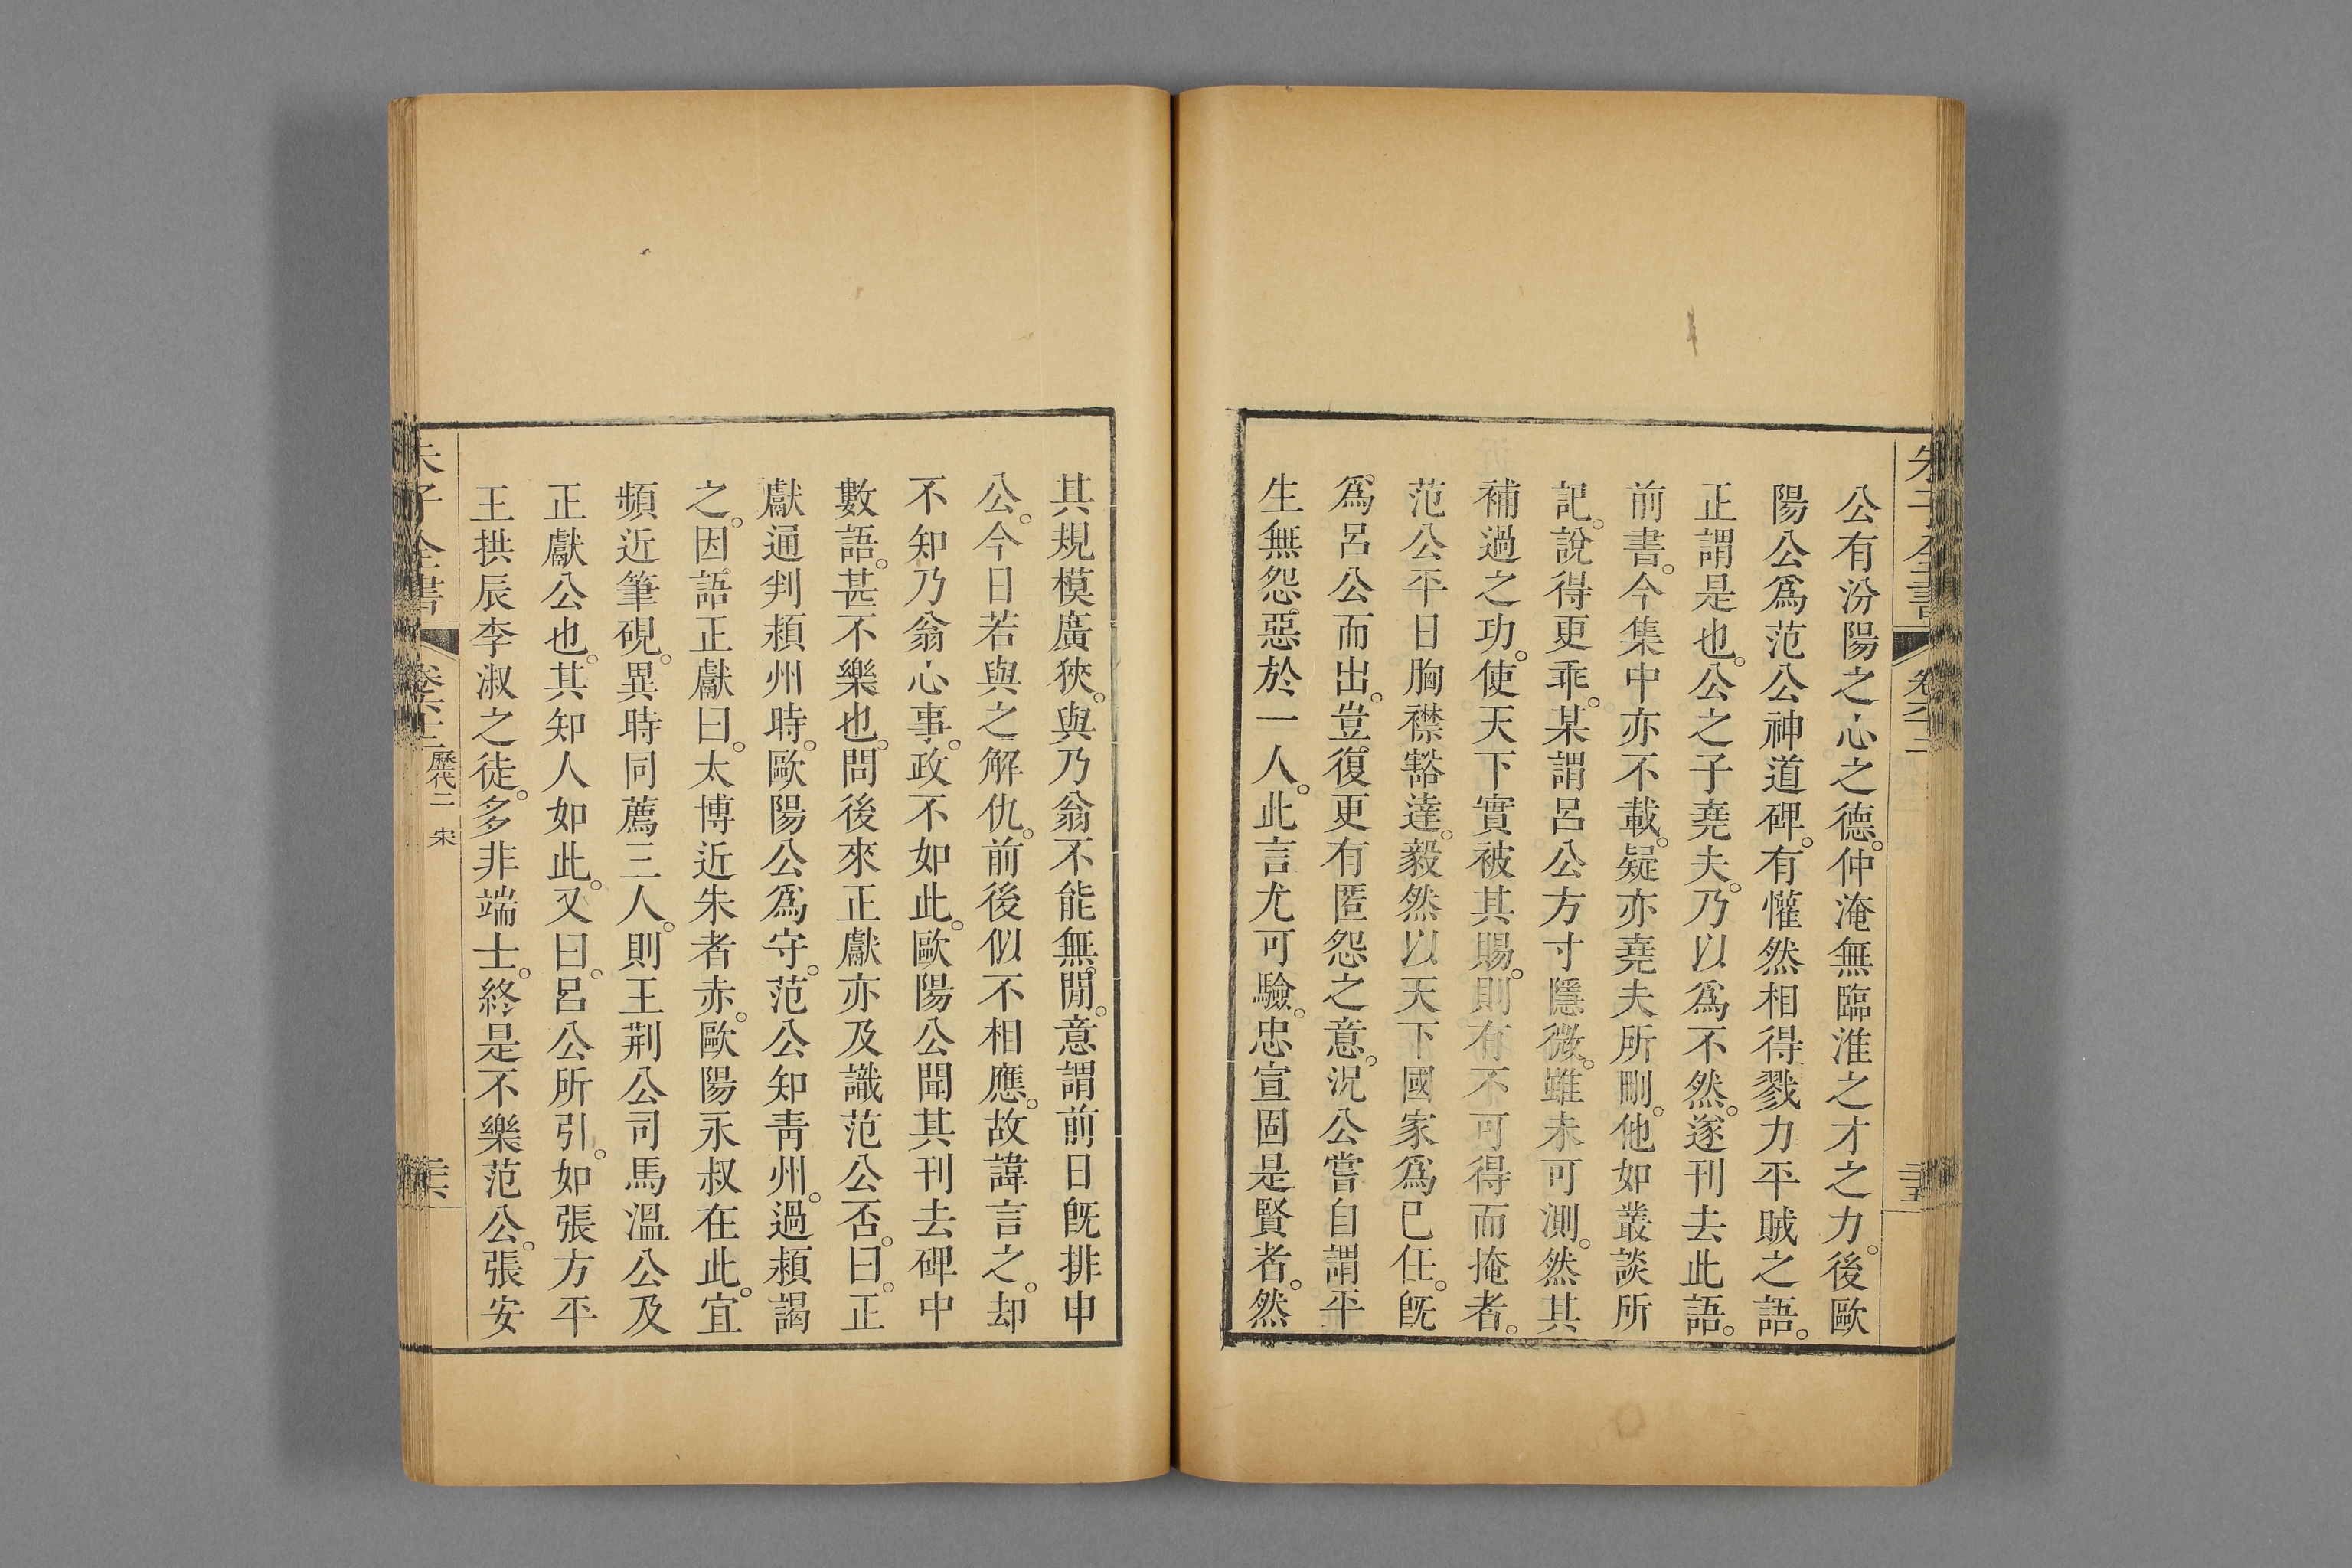 公有汾陽之心之德。仲淹無臨淮之才之力。後歐
陽公爲范公神道碑。有懽然相得戮力平賊之語。
正謂是也。公之子堯夫。乃以爲不然。遂刊去此語。
前書。今集中亦不載。疑亦堯夫所刪。他如叢談所
記。說得更乖。某謂呂公方寸隱微。雖未可測。然其
補過之功。使天下實被其賜。則有不可得而掩者。
范公平日胸襟豁達。毅然以天下國家爲己任。旣
爲呂公而出。豈復更有匿怨之意。況公嘗自謂平
生無怨惡於一人。此言尤可驗。忠宣固是賢者。然
朱子全書
其規模廣狹。與乃翁不能無閒。意謂前日旣排申
公。今日若與之解仇。前後似不相應。故諱言之。却
不知乃翁心事。政不如此。歐陽公聞其刊去碑中
數語。甚不樂也。問後來正獻亦及識范公否。曰。正
獻通判潁州時。歐陽公爲守。范公知靑州。過潁謁
之。因語正獻曰。太博近朱者赤。歐陽永叔在此。宜
頻近筆硯。異時同薦三人。則王荆公司馬溫公及
正獻公也。其知人如此。又曰。呂公所引。如張方平
王拱辰李淑之徒。多非端士。終是不樂范公。張安
朱子全書 歷代二 宋